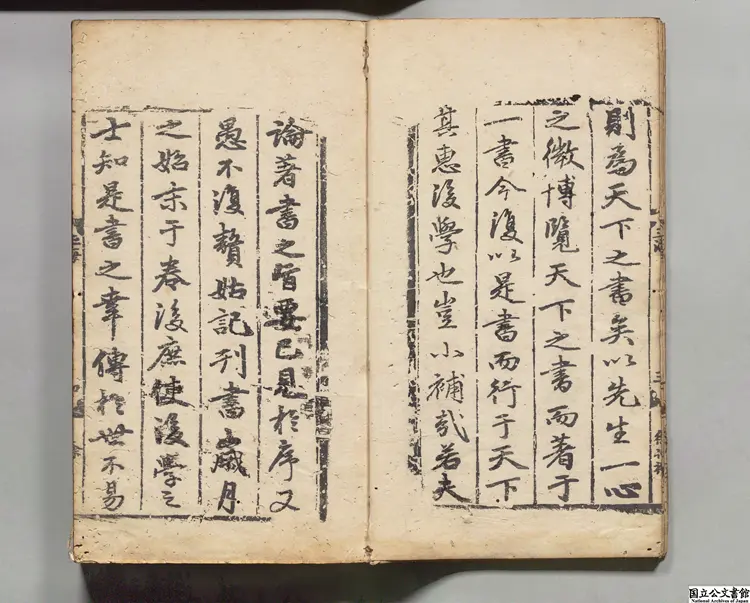 則為天下之書矣以先生一心
之微博覽天下之書而著于
一書今復以是書而行于天下
其惠後學也豈小補哉若夫
論著書之旨要已見於序文
愚不復贅姑記刊書歲月
之始末于卷後庶使後學之
士知是書之幸傳於世不易
国立公文書館
National Archives of Japan